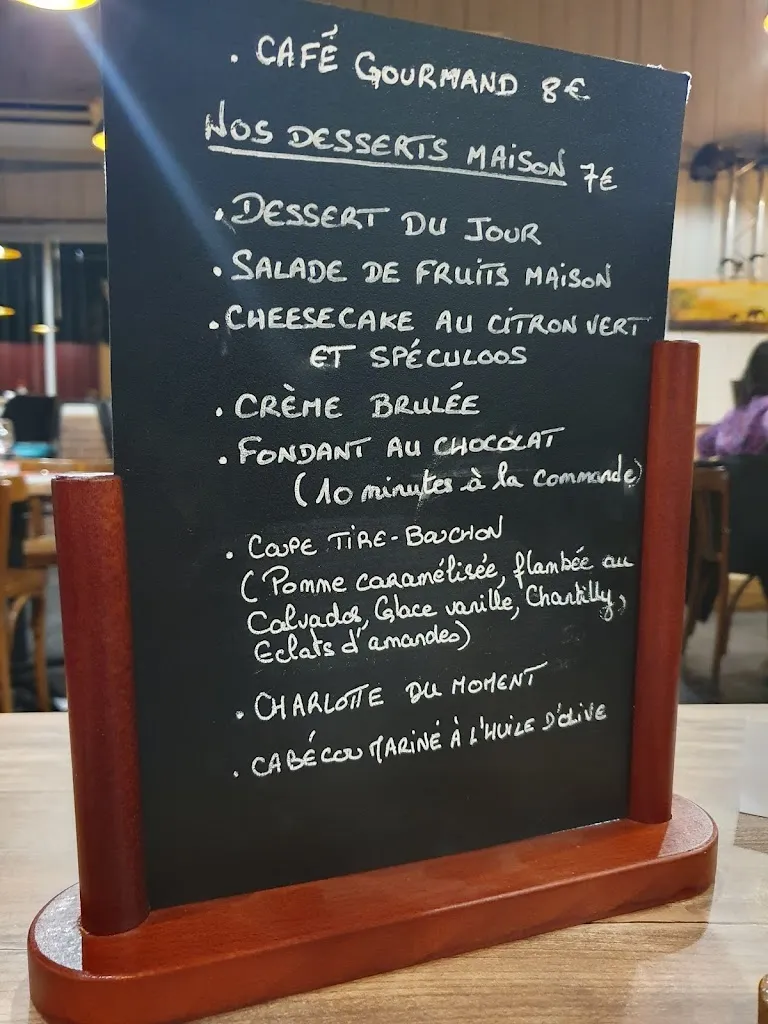 . CAFÉ GOURMAND 8€
NOS DESSERTS MAISON 7€
. DESSERT DU JOUR
. SALADE DE FRUITS MAISON
. CHEESECAKE AU CITRON VERT
ET SPÉCULOOS
. CRÈME BRULÉE
. FONDANT AU CHOCOLAT
(10 minutes à la commande)
. COUPE TIRE-BOUCHON
(Pomme caramélisée, flambée au
Calvados, Glace vanille, Chantilly,
Eclats d'amandes)
. CHARLOTTE DU MOMENT
. CABÉCOU MARINÉ À L'HUILE D'OLIVE